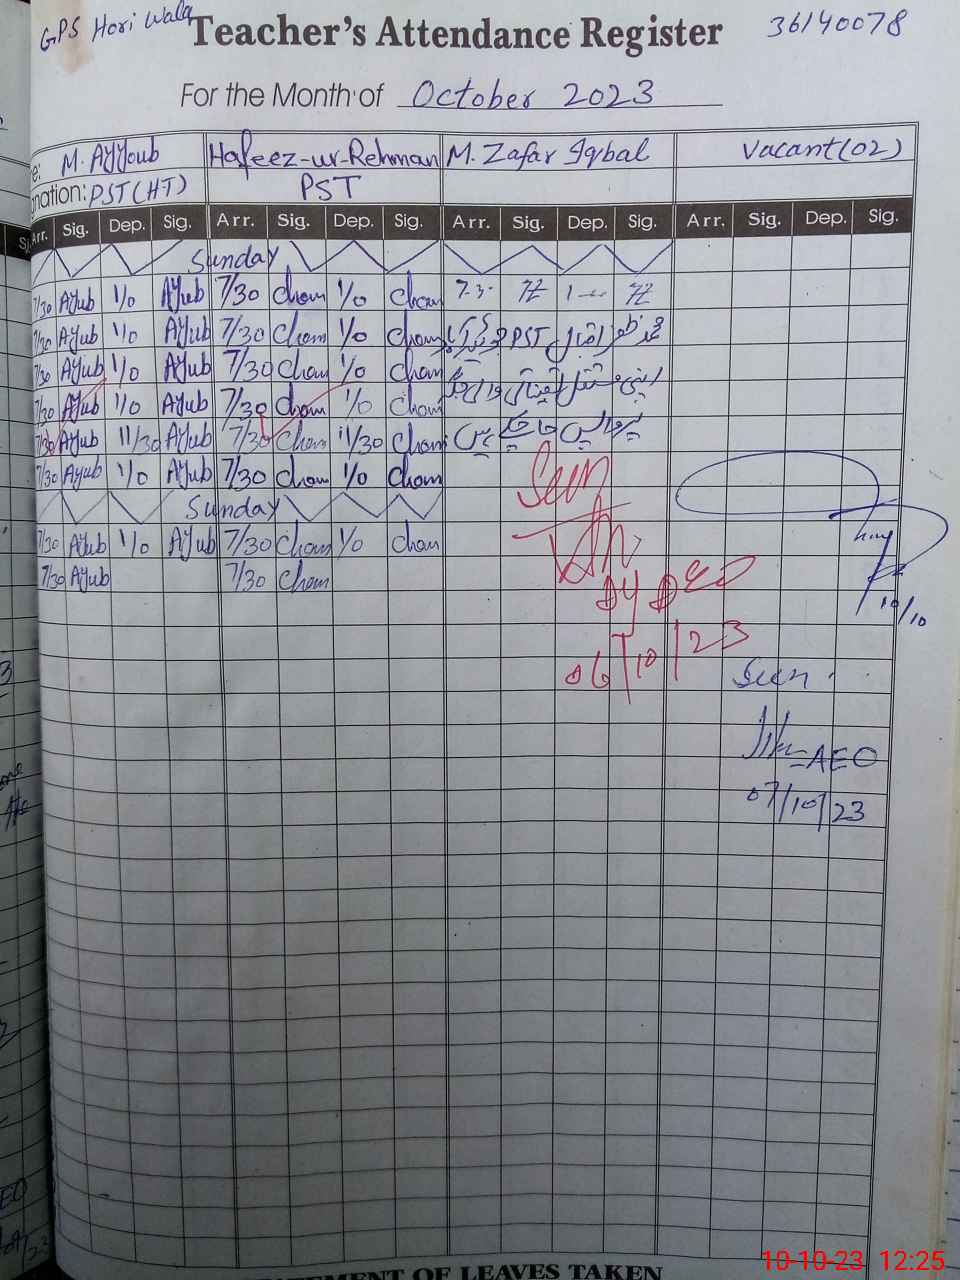 GPS Hori Wala Teacher's Attendance Register 36140078
For the Month of October 2023
e: M. Ayyoub Hafeez-ur-Rehman M. Zafar Iqbal Vacant(02)
nation: PST(HT) PST
Arr. Sig. Dep. Sig. Arr. Sig. Dep. Sig. Arr. Sig. Dep. Sig. Arr. Sig. Dep. Sig.
Sunday
7/30 Ayub 1/0 Ayub 7/30 Cham 1/0 Cham 7-3-
7/30 Ayub 1/0 Ayub 7/30 Cham 1/0 Cham محمد ظفر اقبال PST
7/30 Ayub 1/0 Ayub 7/30 Cham 1/0 Cham
7/30 Ayub 1/0 Ayub 7/30 Cham 1/0 Cham اپنی مستقل تعیناتی والی جگہ
7/30 Ayub 11/30 Ayub 7/30 Cham 11/30 Cham پر واپس جا چکے ہیں
7/30 Ayub 1/0 Ayub 7/30 Cham 1/0 Cham
Seen
Sunday
7/30 Ayub 1/0 Ayub 7/30 Cham 1/0 Cham
7/30 Ayub 7/30 Cham
Dy DEO
10/10
06/10/23
Seen
AEO
07/10/23
STATEMENT OF LEAVES TAKEN
10-10-23 12:25